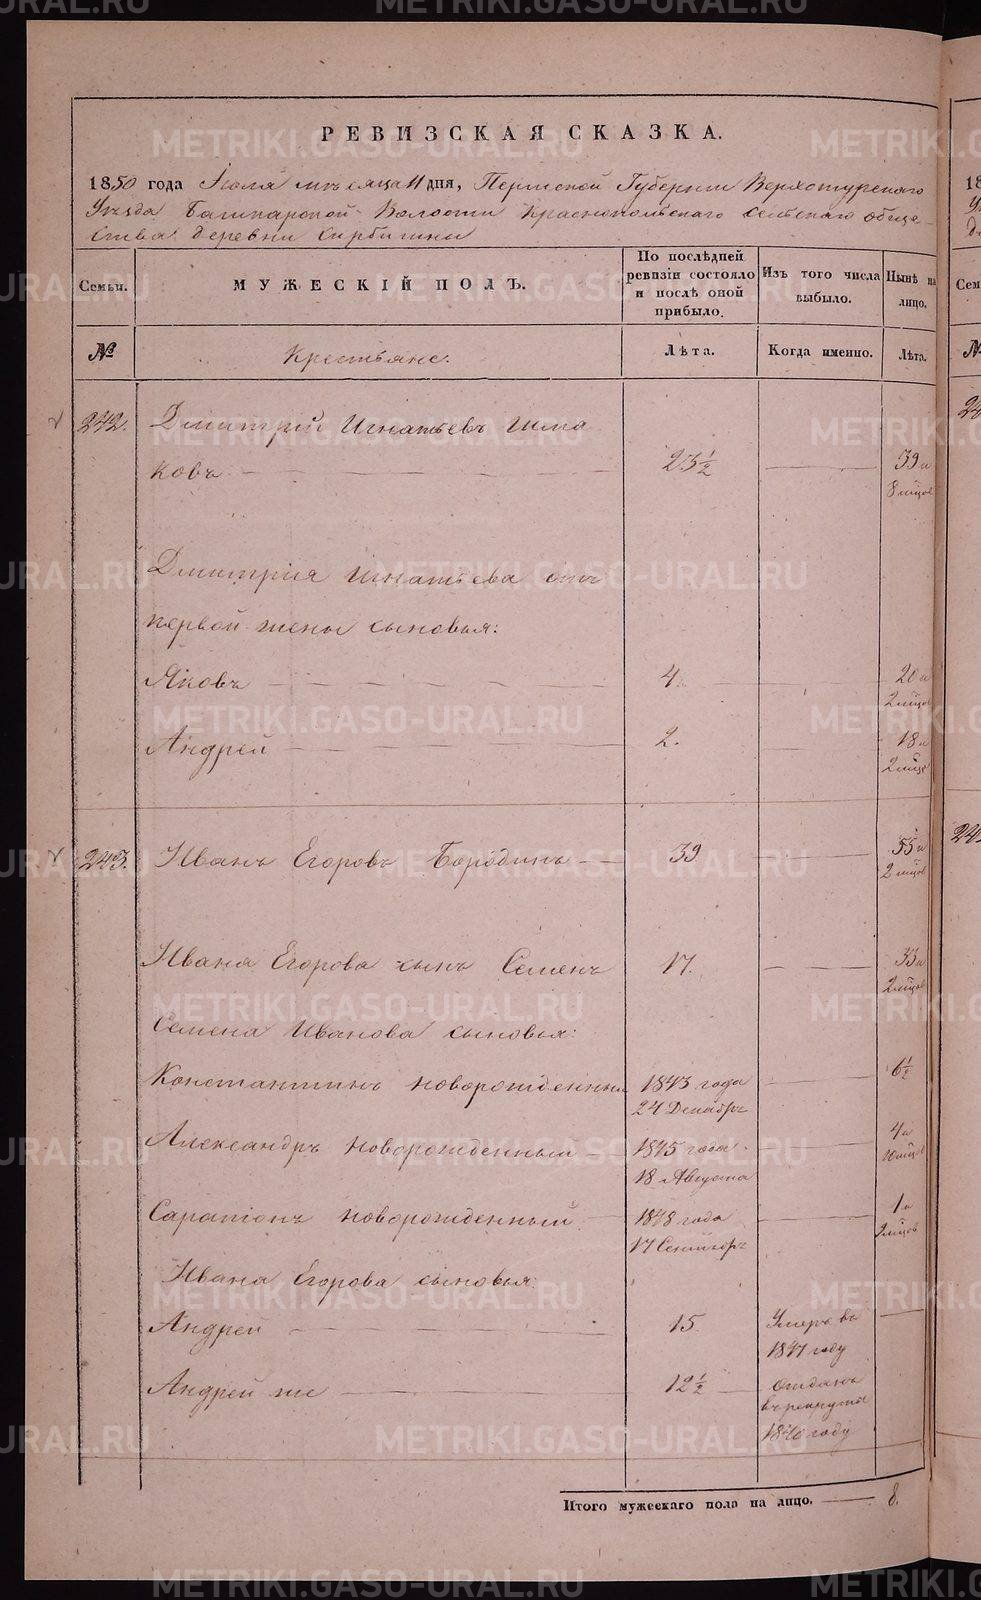 РЕВИЗСКАЯ СКАЗКА.
1850 года Июля мѣсяца 11 дня, Пермской Губернии Верхотурскаго
Уѣзда Башкарской Волости Краснопольскаго сельскаго обще-
ства деревни
Семьи.
МУЖЕСКІЙ ПОЛЪ.
По послѣдней ревизіи состояло и послѣ оной прибыло.
Изъ того числа выбыло.
Нынѣ на лицо.
№
Крестьяне.
Лѣта.
Когда именно.
Лѣта.
242. Дмитрий Игнатьевъ Шма
ковъ 23½ 39 и
8 мѣцов
Дмитрия Игнатьева отъ
первой жены сыновья:
Яковъ 4. 20 и
2 мѣцов
Андрей 2. 18 и
2 мѣцов
243. Иванъ Егоровъ Бородинъ 39 55 и
2 мѣцов
Ивана Егорова сынъ Семенъ 17. 33 и
2 мѣцов
Семена Иванова сыновья:
Константинъ новорожденный 1843 года 6½
24 Декабрь
Александръ новорожденный 1845 года 4 и
18 Августа 10 мѣцов
Сарапіонъ новорожденный 1848 года 1 и
17 Сентябрь 9 мѣцов
Ивана Егорова сыновья:
Андрей 15 Умеръ въ
1847 году
Андрей же 12½ отданъ
въ рекруты
1840 году
Итого мужескаго пола на лицо. 8.
METRIKI.GASO-URAL.RU